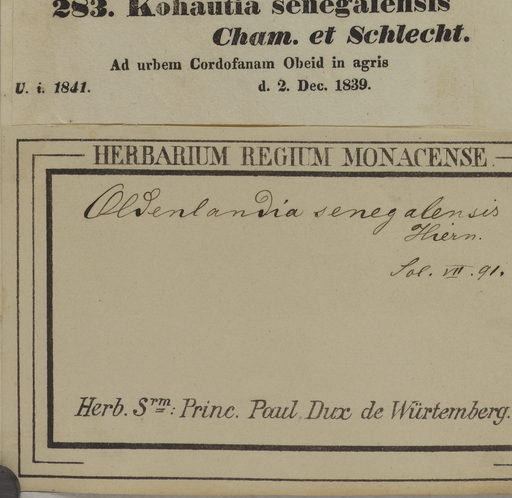 283. Kohautia senegalensis
Cham. et Schlecht.
Ad urbem Cordofanam Obeid in agris
U. i. 1841. d. 2. Dec. 1839.
HERBARIUM REGIUM MONACENSE.
Oldenlandia senegalensis
Hiern.
Sol. VII. 91.
Herb. Srm: Princ. Paul Dux de Würtemberg.